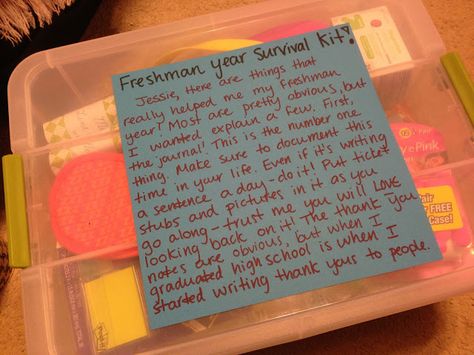 Freshman Year Survival Kit!
Jessie, there are things that
really helped me my freshman
year! Most are pretty obvious, but
I wanted explain a few. First,
the journal! This is the number one
thing. Make sure to document this
time in your life. Even if it's writing
a sentence a day - do it! Put ticket
stubs and pictures in it as you
go along - trust me you will LOVE
looking back on it! The thank you
notes are obvious, but when I
graduated high school is when I
started writing thank yous to people.
Pink
FREE
Case!